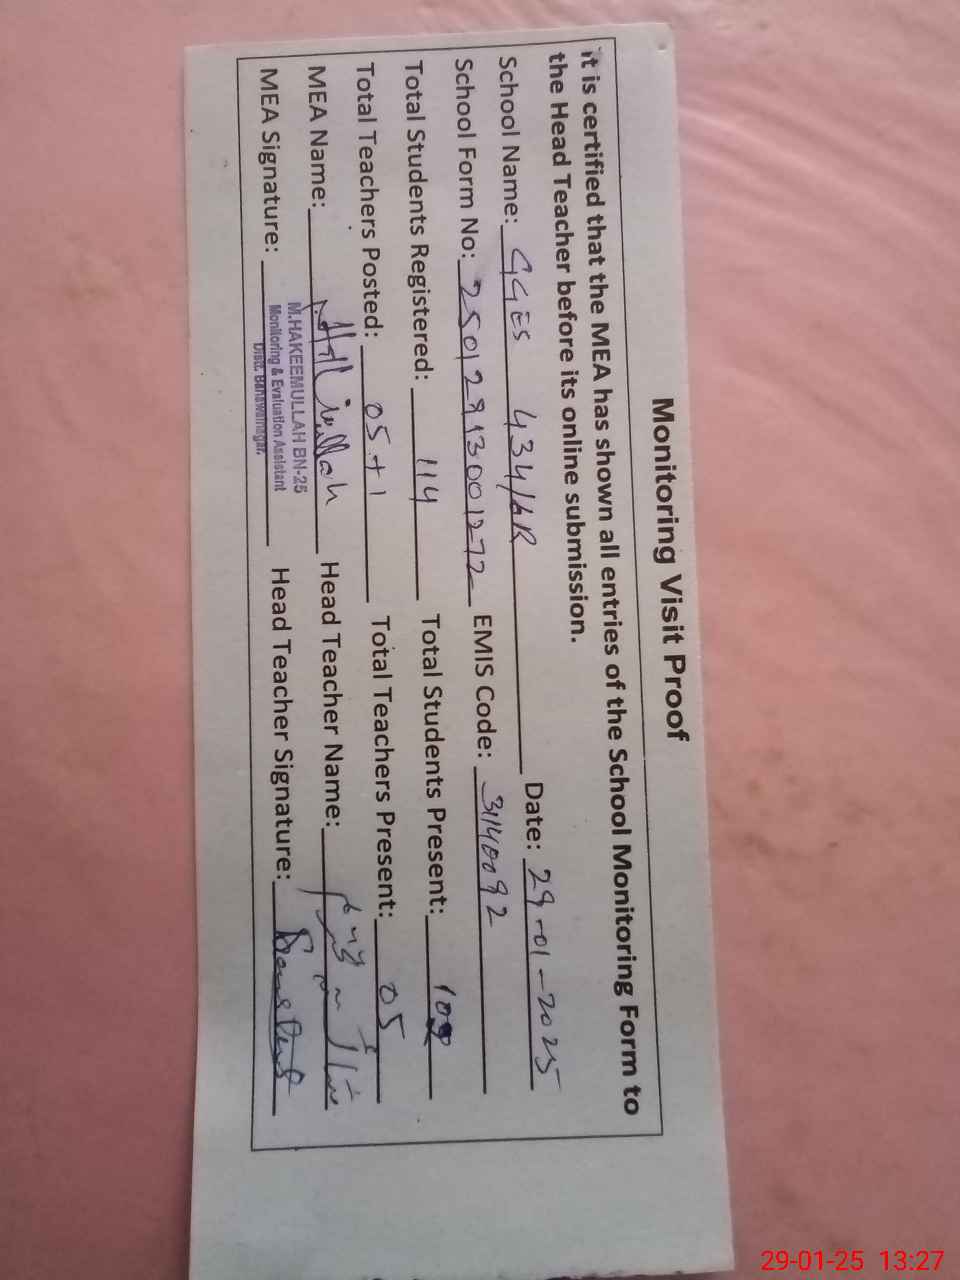 Monitoring Visit Proof
it is certified that the MEA has shown all entries of the School Monitoring Form to
the Head Teacher before its online submission.
School Name: GGES 434/6R Date: 29-01-2025
School Form No: 25012913001272 EMIS Code: 31140092
Total Students Registered: 114 Total Students Present:
Total Teachers Posted: 05+1 Total Teachers Present: 05
MEA Name: Head Teacher Name:
M.HAKEEMULLAH BN-25
MEA Signature: Monitoring & Evaluation Assistant Head Teacher Signature:
Distt. Bahawalnagar.
29-01-25 13:27